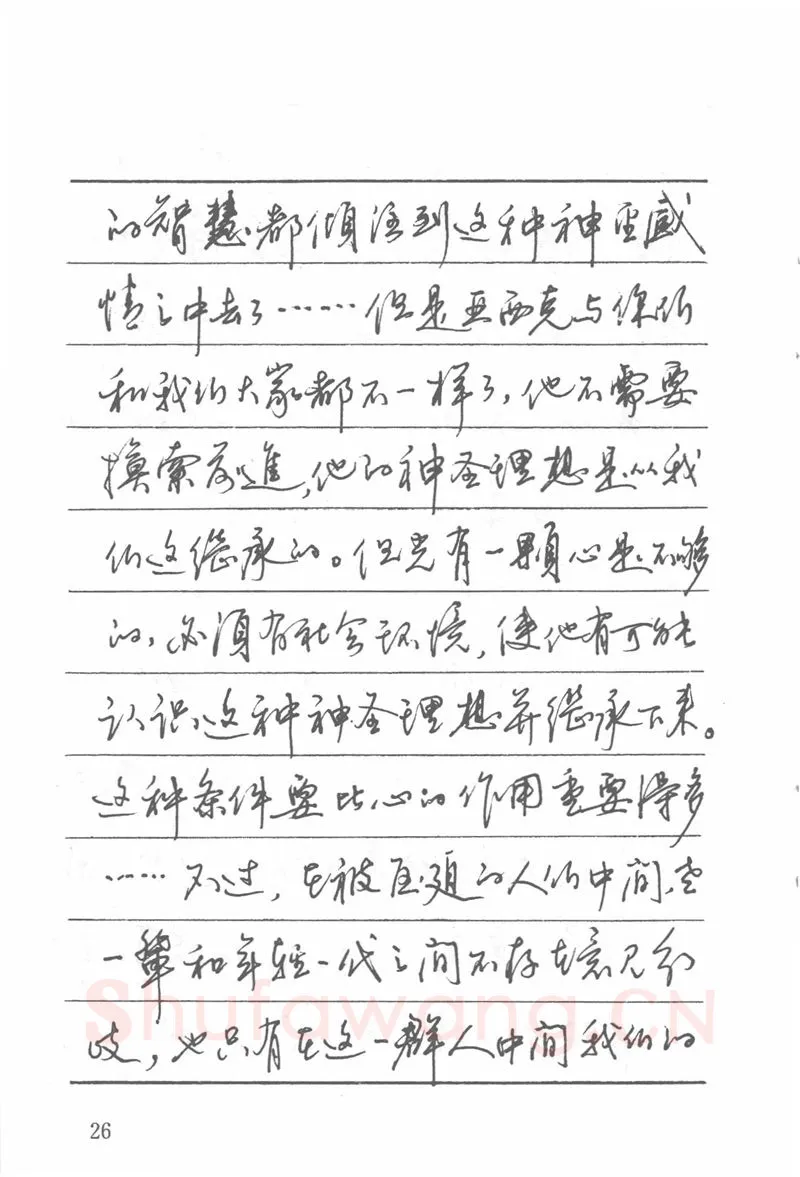 的智慧都倾注到这种神圣感
情之中去了……但是亚西克与保阶
和我们大家都不一样了,他不需要
摸索前進,他的神圣理想是从我
们这继承的。但光有一颗心是不够
的,必须有社会环境,使他有可能
认识这种神圣理想并继承下来。
这种条件要比心的作用重要得多
……不过,在被压迫的人们中间,老
一辈和年轻一代之间不存在意见分
歧,也只有在这一群人中间我们的
26
Shufawang.CN